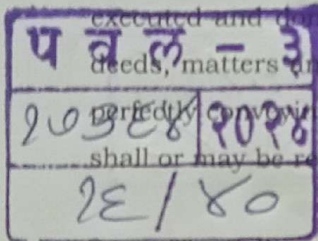 executed and
प व ल - ३
deeds, matters
१७३६४ २०२४
perfectly
shall or may be
१६/४०